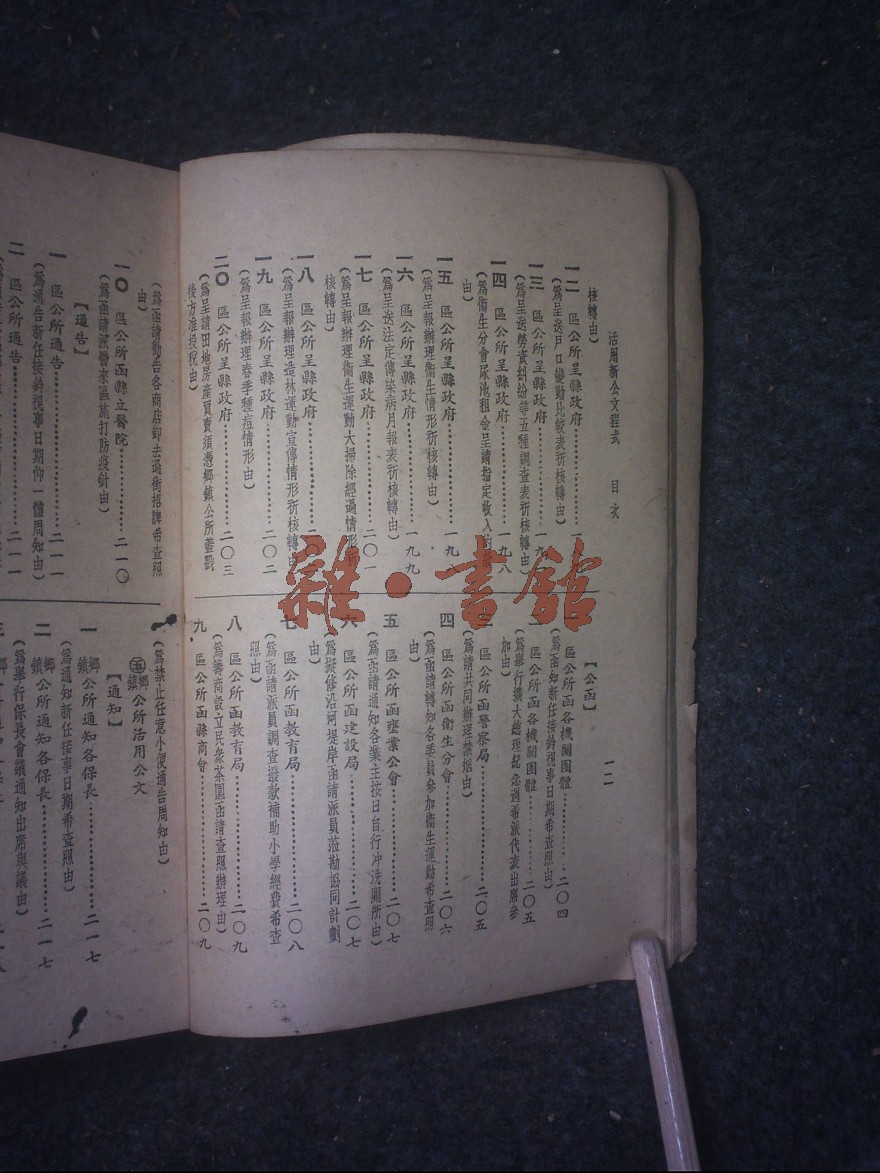 活用新公文程式 目次
核轉由)
一二 區公所呈縣政府
(爲呈送戶口變動比較表祈核轉由)
一三 區公所呈縣政府
(爲呈送勞資糾紛等五種調查表祈核轉由)
一四 區公所呈縣政府……一九八
(爲衞生分會尿池租金呈請指定收入
由)
一五 區公所呈縣政府……一九八
(爲呈報辦理衞生情形祈核轉由)
一六 區公所呈縣政府……一九九
(爲呈送法定傳染病月報表祈核轉由)
一七 區公所呈縣政府……二〇一
(爲呈報辦理衞生運動大掃除經過情形祈
核轉由)
一八 區公所呈縣政府
(爲呈報辦理造林運動宣傳情形祈核轉由)
一九 區公所呈縣政府……二〇二
(爲呈報辦理春季種痘情形由)
二〇 區公所呈縣政府……二〇三
(爲呈請田地房產買賣須憑鄉鎮公所蓋戳
後方准投稅由)
【公函】
一 區公所函各機關團體……二〇四
(爲函知新任接鈐視事日期希查照由)
二 區公所函各機關團體……二〇五
(爲舉行擴大總理紀念週希派代表出席參
加由)
三 區公所函警察局……二〇五
(爲請共同辦理禁烟由)
四 區公所函衞生分會……二〇六
(爲函請轉知各委員參加衞生運動希查照
由)
五 區公所函壅業公會……二〇七
(爲函請通知各業主按日自行冲洗廁所由)
六 區公所函建設局……二〇七
(爲擬修沿河堤岸函請派員蒞勘協同計劃
由)
七 區公所函教育局……二〇八
(爲函請派員調查撥款補助小學經費希查
照由)
八 區公所函教育局……二〇九
(爲籌商設立民衆茶園函請查照辦理由)
九 區公所函縣商會……二〇九
一二
(爲函請勸告各商店卸去過街招牌希查照
由)
一〇 區公所函縣立醫院……二一〇
(爲函請派醫來區施打防疫針由)
【通告】
一 區公所通告……二一一
(爲通告新任接鈐視事日期仰一體周知由)
二 區公所通告……二一一
(爲禁止任意小便通告周知由)
㊄鄉鎮公所活用公文
【通知】
一 鄉鎮公所通知各保長……二一七
(爲通知新任接事日期希查照由)
二 鄉鎮公所通知各保長……二一七
(爲舉行保長會議通知出席與議由)
雜·書館